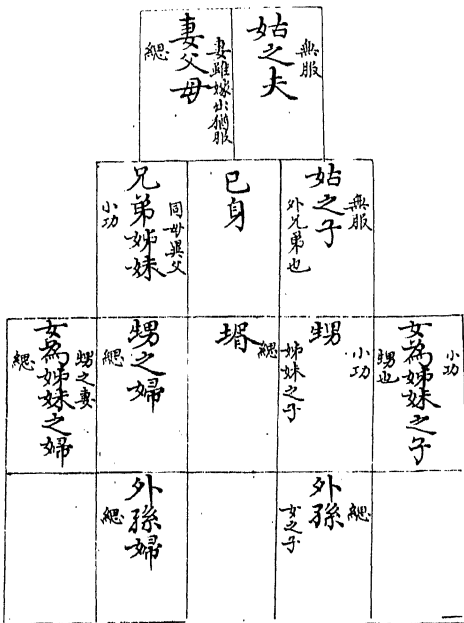 無服
姑之夫
妻雖嫁出猶服
妻父母
緦
無服
姑之子
外兄弟也
己身
同母異父
兄弟姊妹
小功
小功
女為姊妹之子
甥也
小功
甥
姊妹之子
壻
緦
甥之婦
緦
甥之妻
女為姊妹之婦
緦
緦
外孫
女之子
外孫婦
緦